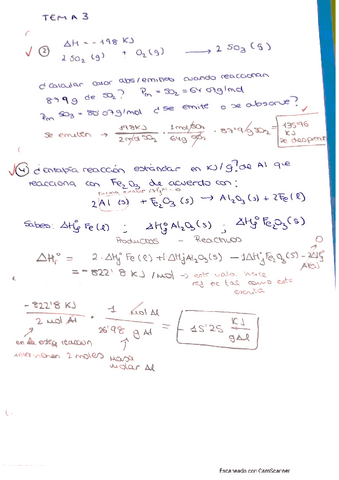 TEMA 3
② ΔH = -198 KJ
2 SO₂ (g) + O₂ (g) → 2 SO₃ (g)
¿calcular calor abs/emitido cuando reaccionan
87'9 g de SO₂? Pm SO₂ = 64'07 g/mol
Pm SO₃ = 80'07 g/mol ¿Se emite o se absorbe?
Se emiten → 198 KJ / 2 mol SO₂ · 1 mol SO₂ / 64 g SO₂ · 87'9 g SO₂ = 135'96 KJ se desprende
④ ¿Entalpía reacción estándar en KJ/g? de Al que
reacciona con Fe₂O₃ de acuerdo con:
2Al (s) + Fe₂O₃ (s) → Al₂O₃ (s) + 2Fe (l)
Sabes: ΔHf° Fe (l) ; ΔHf° Al₂O₃ (s) ; ΔHf° Fe₂O₃ (s)
Productos - Reactivos
ΔHr° = 2·ΔHf° Fe (l) + 1ΔHf° Al₂O₃ (s) - 1ΔHf° Fe₂O₃ (s) - 2ΔHf° Al (s) 0
= -822'8 KJ /mol → este valor hace
-822'8 KJ / 2 mol Al · 1 mol Al / 26'98 g Al = -15'25 KJ / g Al
en la reacción
intervienen 2 moles
masa molar Al
Escaneado con CamScanner